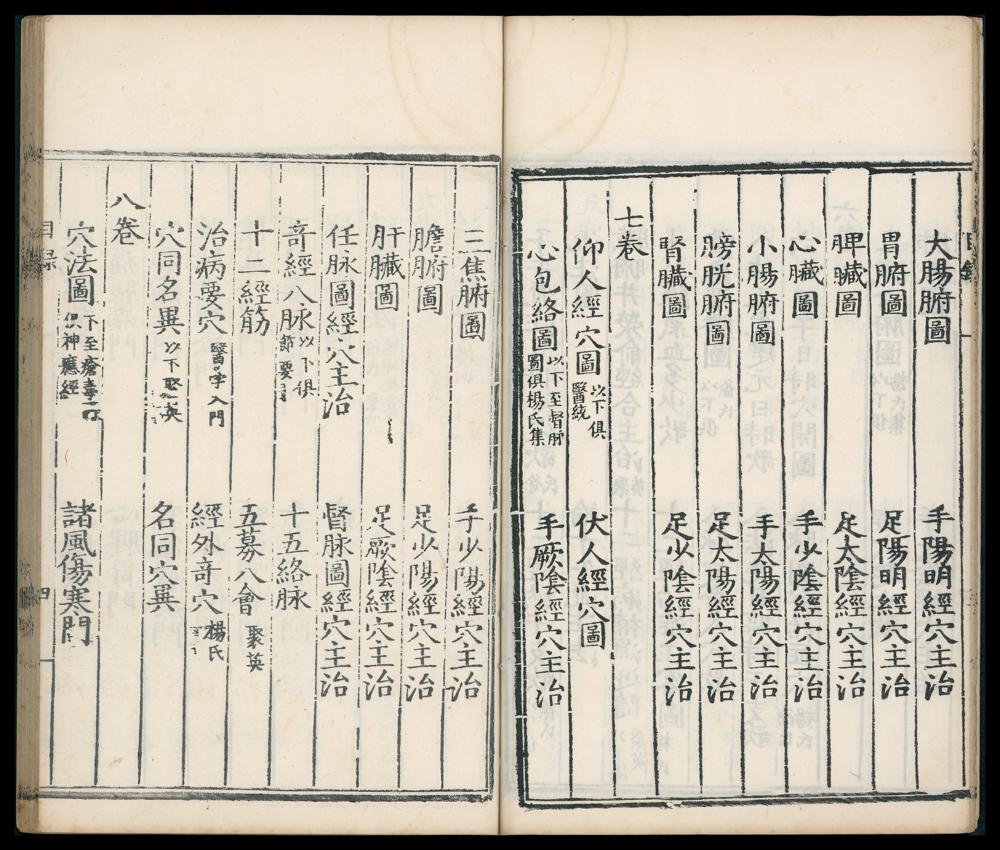 大腸腑圖 手陽明經穴主治
胃腑圖 足陽明經穴主治
脾臟圖 足太陰經穴主治
心臟圖 手少陰經穴主治
小腸腑圖 手太陽經穴主治
膀胱腑圖 足太陽經穴主治
腎臟圖 足少陰經穴主治
七卷
仰人經穴圖 以下俱醫統 伏人經穴圖
心包絡圖 以下至督脉圖俱楊氏集 手厥陰經穴主治
三焦腑圖 手少陽經穴主治
膽腑圖 足少陽經穴主治
肝臟圖 足厥陰經穴主治
任脉圖經穴主治 督脉圖經穴主治
奇經八脉 以下俱節要 十五絡脉
十二經筋 五募八會 聚英
治病要穴 醫學入門 經外奇穴 楊氏
穴同名異 以下聚英 名同穴異
八卷
穴法圖 下至瘡毒門俱神應經 諸風傷寒門
目录 四